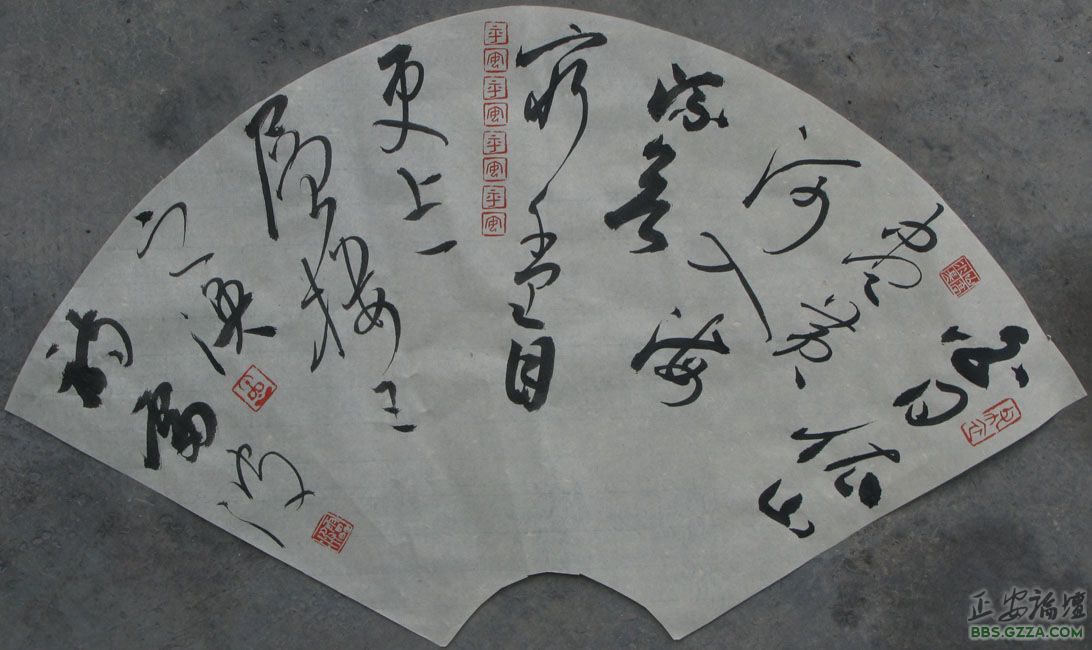 白日依山
尽黄
河入海
流欲
穷千里目
更上一
层楼王
之涣
诗
正安論壇
BBS.GZZA.COM